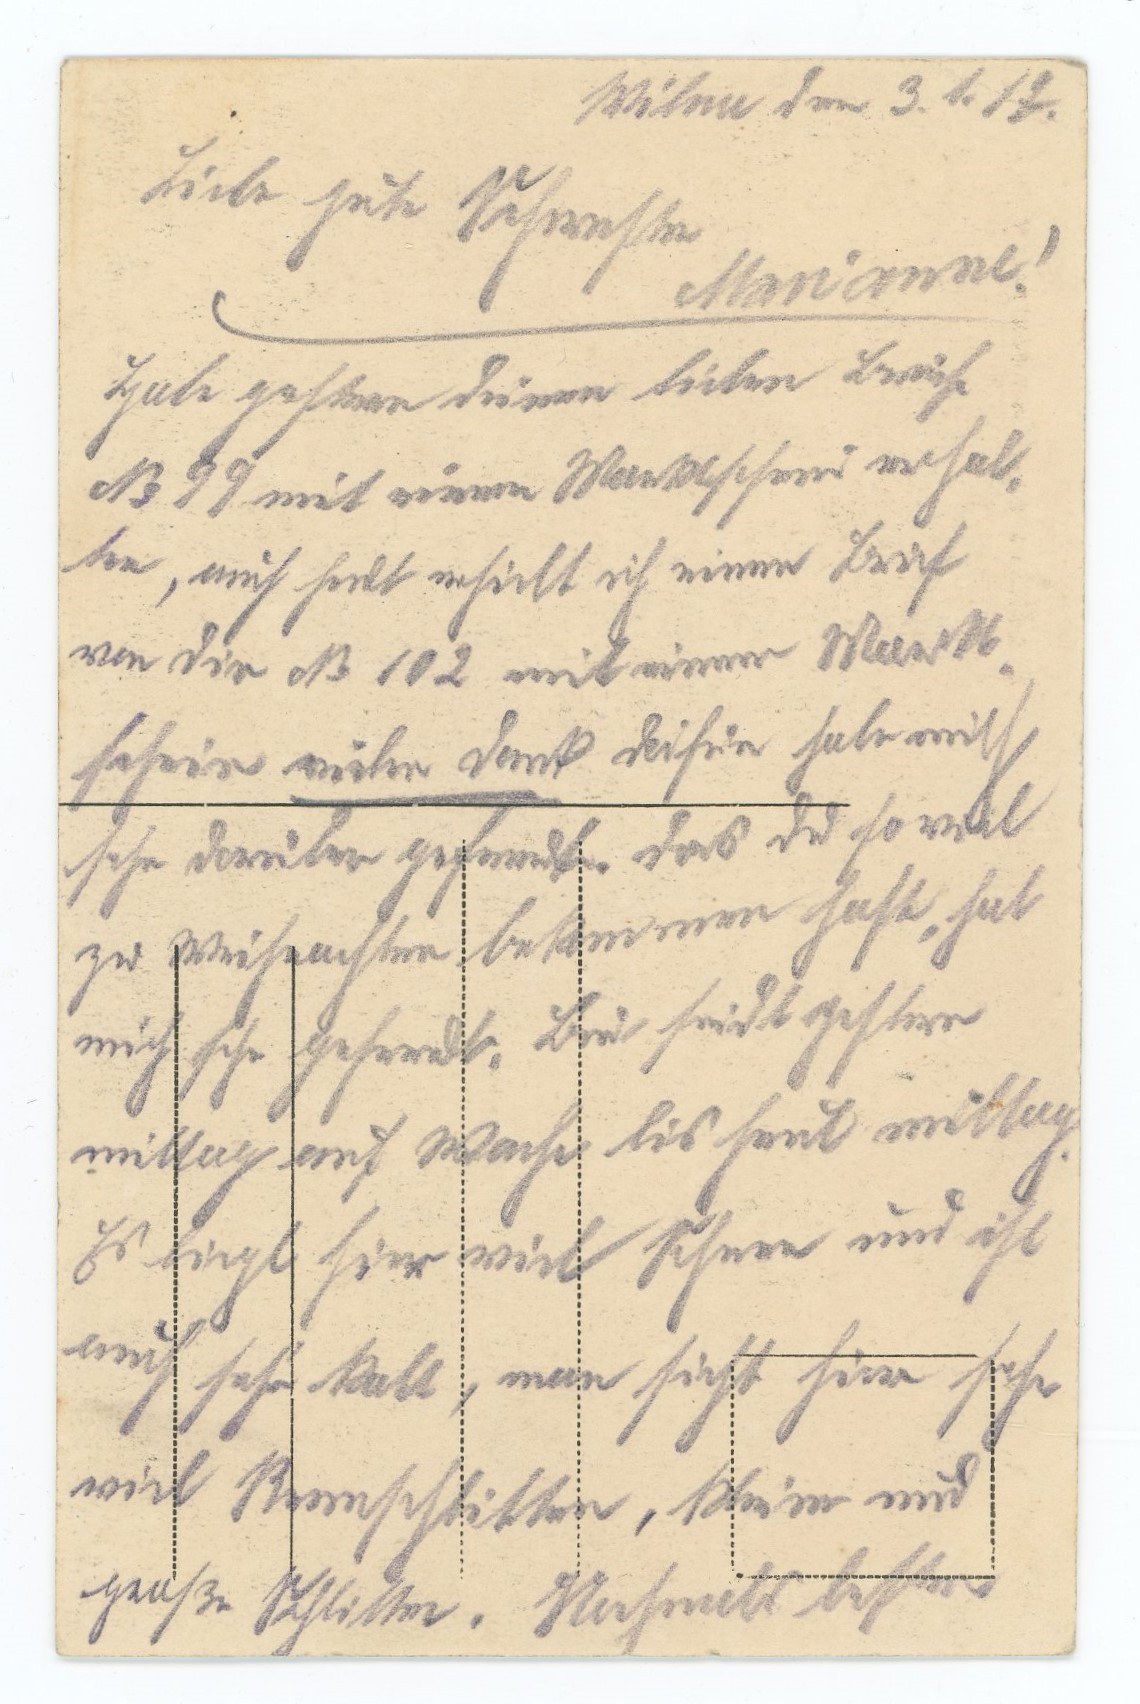 Wilna den 3. 1. 17.
Liebe gute Schwester
Marianne!
Habe gestern deinen lieben Brief
No 99 mit einem Markschein erhal-
ten, auch heut erhielt ich einen Brief
von dir No 102 mit einem Mark-
schein vielen Dank dafür habe mich
sehr darüber gefreudt. das du so viel
zu Weihnachten bekommen hast, hat
mich sehr gefreudt. Bin seidt gestern
mittag auf Wache bis heut mittag.
Es liegt hier viel Schnee und ist
auch sehr kalt, man sieht hier sehr
viel Rennschlitten, klein und
große Schlitten. Nochmals besten